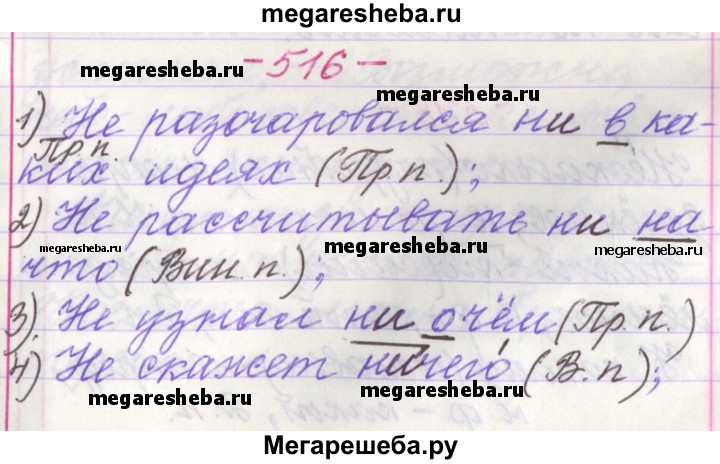 megaresheba.ru
-516-
megaresheba.ru
megaresheba.ru
1) Не разочаровался ни в ка-
Пр.п.
ких идеях (Пр.п.);
2) Не рассчитывать ни на
megaresheba.ru megaresheba.ru megaresheba.ru
что (Вин.п.);
3). Не узнал ни о чём (Пр.п.)
4) Не скажет ничего (В.п);
megaresheba.ru megaresheba.ru
Мегарешеба.ру